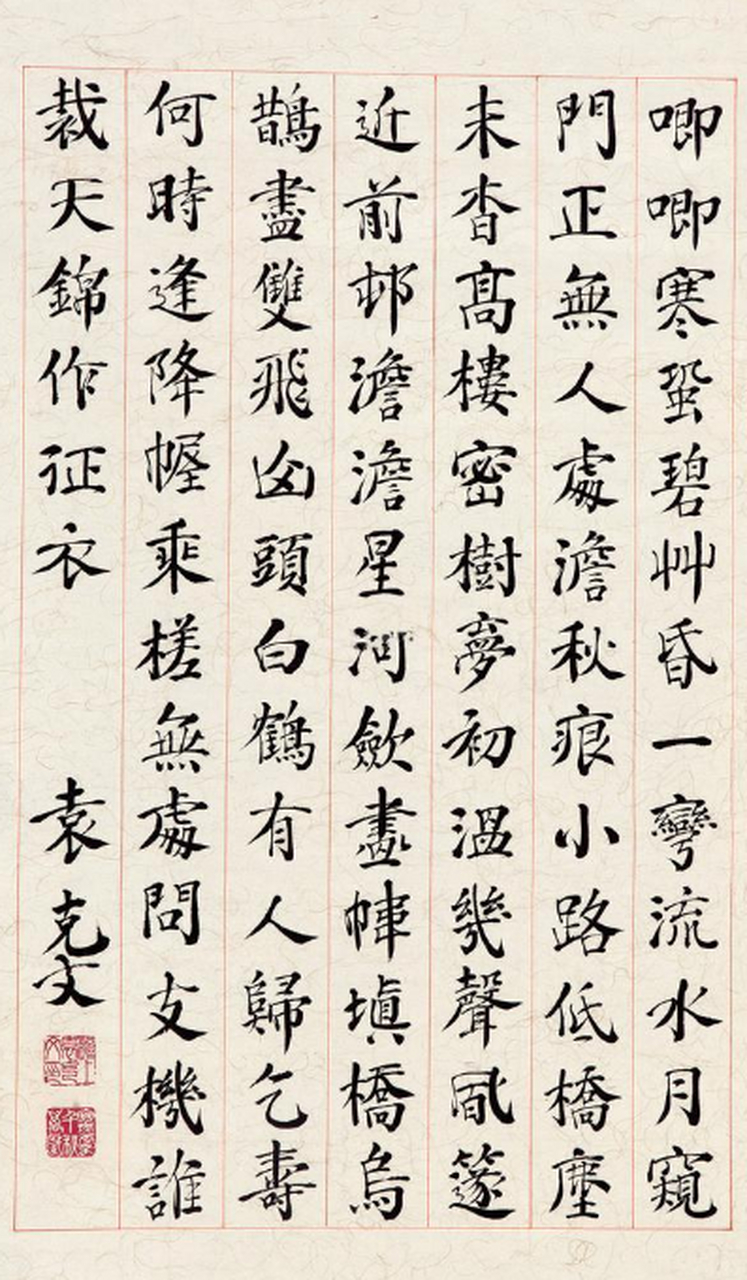 唧唧寒蛩碧艸昏一彎流水月窺
門正無人處澹秋痕小路低橋塵
未杳髙樓密樹夢初溫幾聲凮篴
近前邨澹澹星河歛畫幃塡橋烏
鵲盡雙飛山頭白鶴有人歸乞壽
何時逢降幄乘槎無處問支機誰
裁天錦作征衣 袁克文